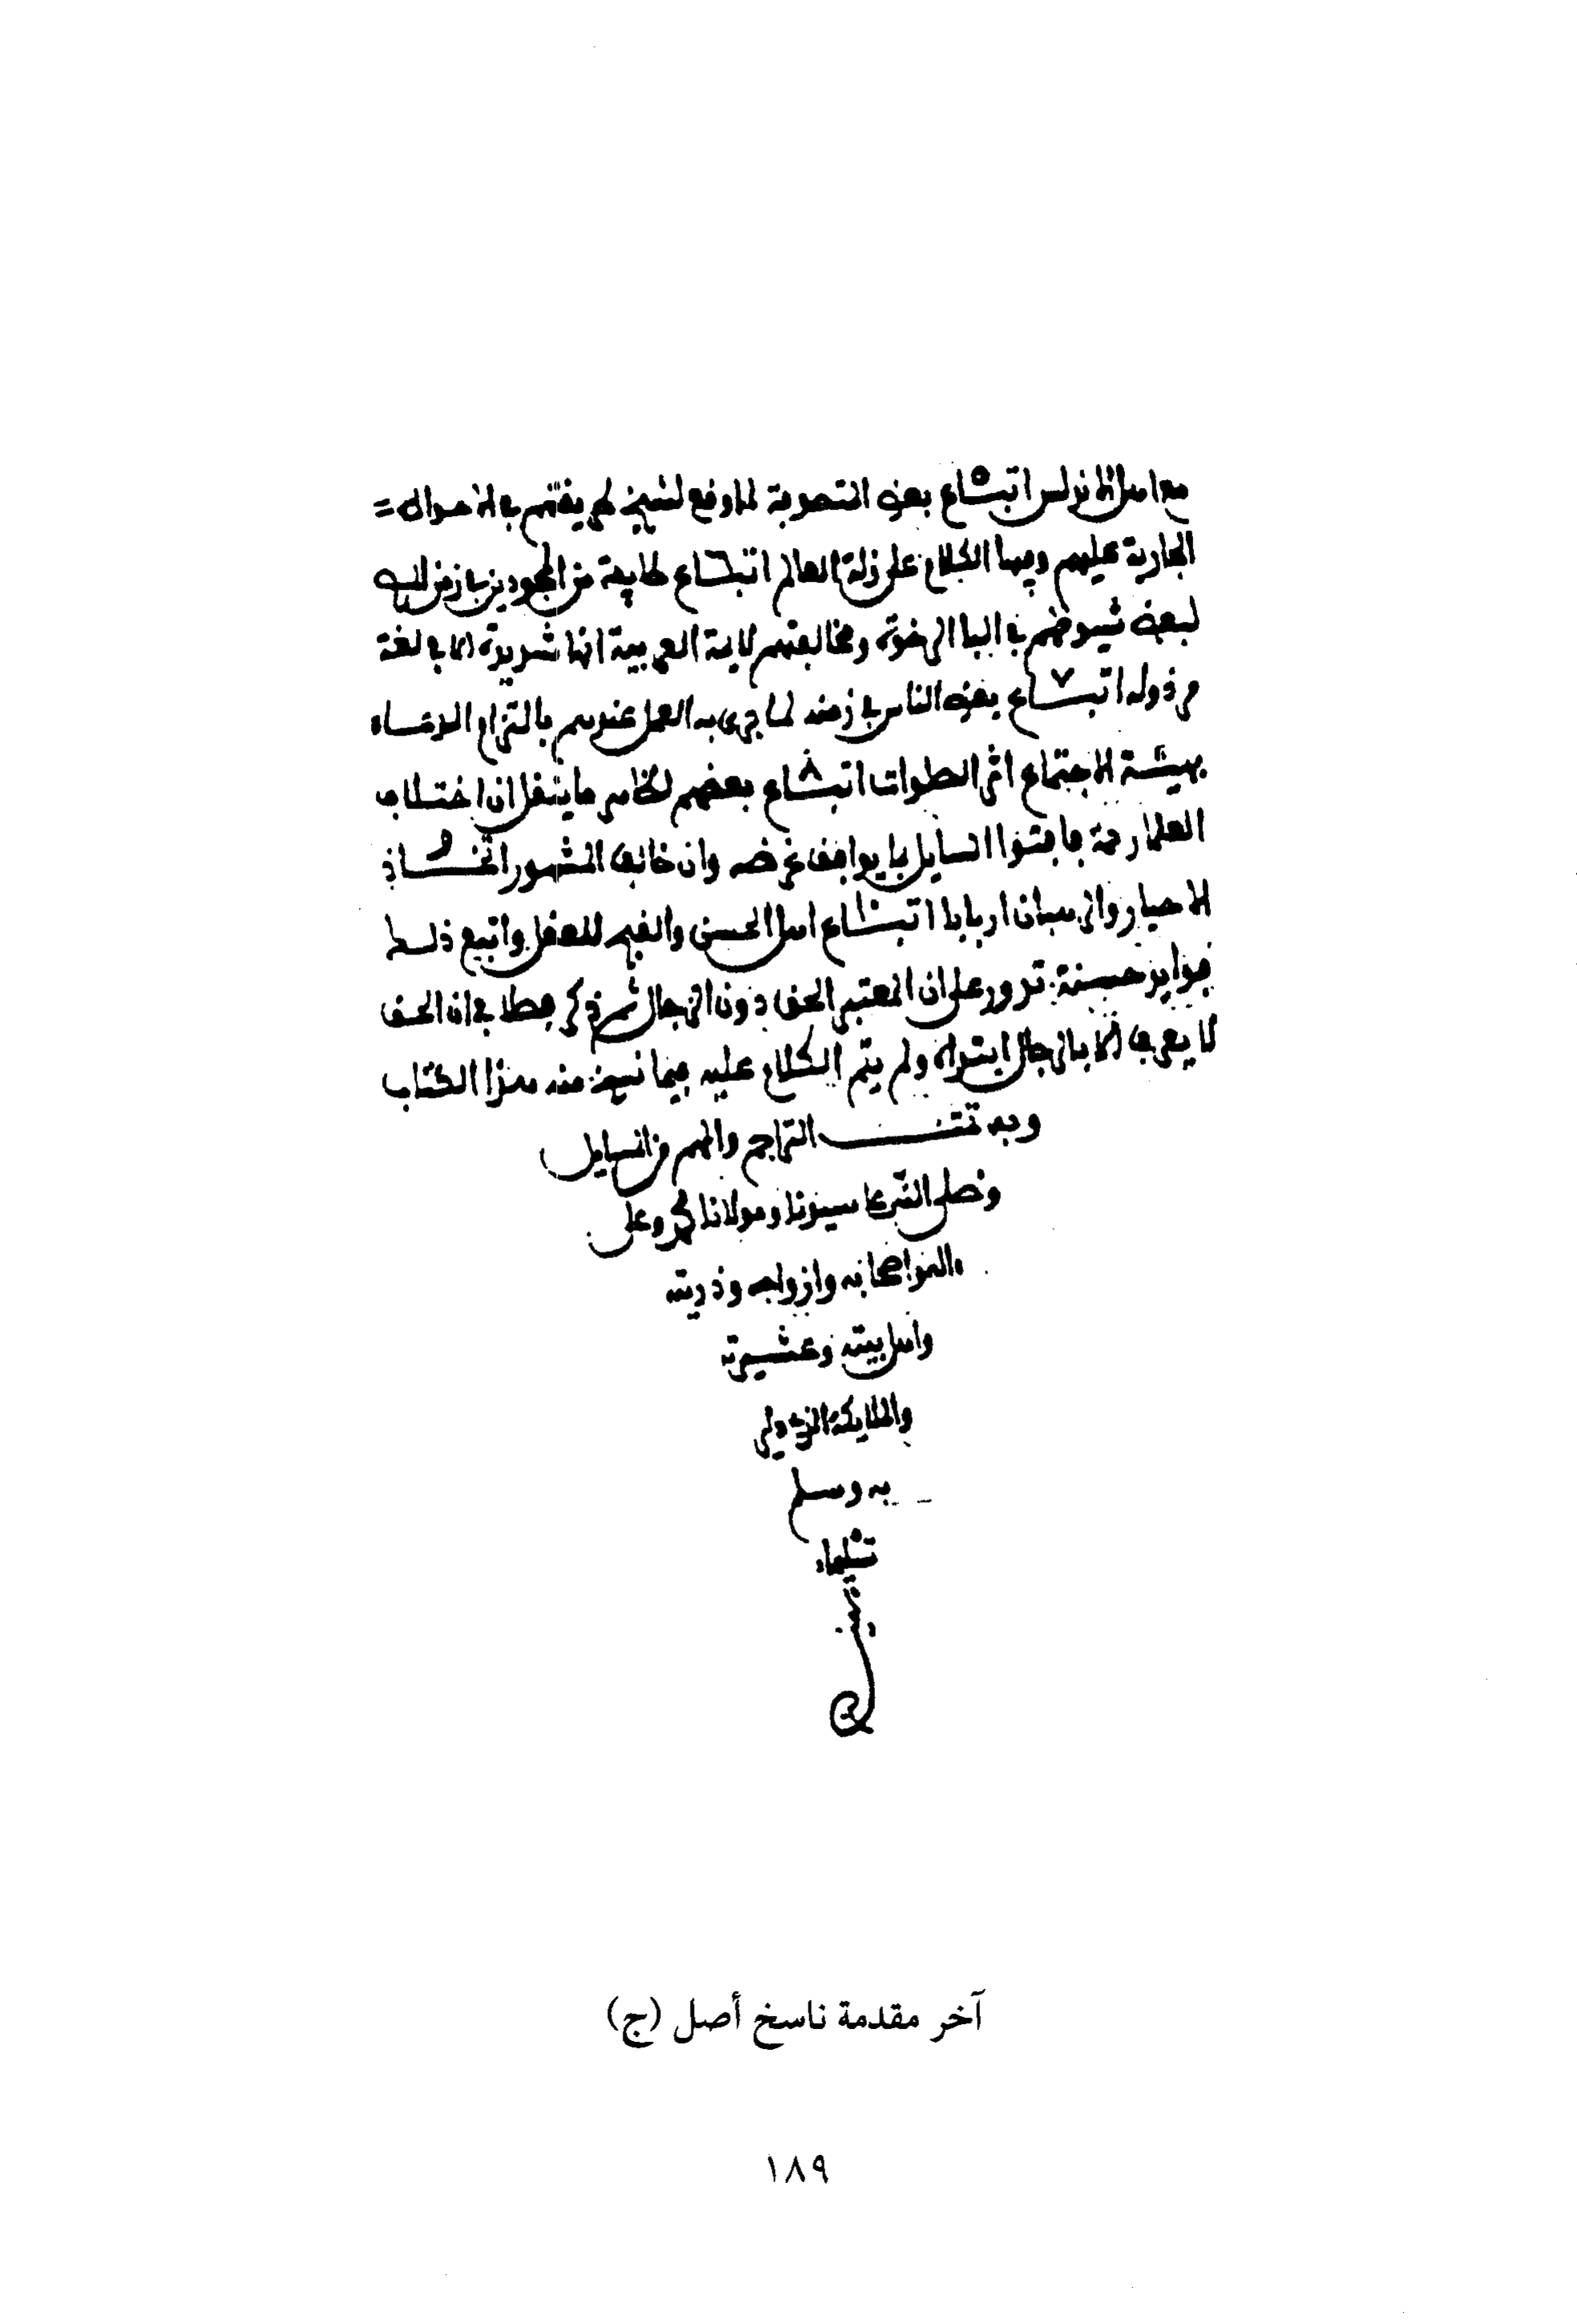 مع اهل الاندلس اتبـ٥ـاع بعض المتصوفة لما وقع لشيخ لهم يفتيهم في الاحوال =
الجارية عليهم وفيها الكلام على زلة العالم اتبـ٦ـاع طايفة من المجودين بازمن
لبعض شيوخهم في اليا الرخوة ومخالفتهم لايمة العربية انها شديدة الا في لغة
مرذولة اتبـ٧ـاع بعض الناس في زمنه لما جرى به العمل عندهم بالتزام الدعاء
بهيئة الاجتماع اثر الصلوات اتبـ٨ـاع بعضهم لظاهر ما ينقل ان اختلاف
العلما رحمة فافتوا السايل بما يوافق غرضه وان خالف المشهور اتخـ٩ـاذ
الاحبار والرهبان اربابا اتبـ١٠ـاع اهل الحسن والقبح للعقل واتبع ذلك
فوايد حسنة تدور على ان المعتبر الحق دون الرجال ثم ذكر فصلا في ان الحق
لا يعرف الا بالرجال ابتداه ولم يتم الكلام عليه فيما نسخ منه هذا الكتاب
وبه تمت التراجم والمهم من المسايل
وصلى الله على سيدنا ومولانا محمد وعلى
اله واصحابه وازواجه وذريته
واهل بيته وعشيرته
والملايكة
به وسلم
تسليما
آخر مقدمة ناسخ أصل (ج)
١٨٩